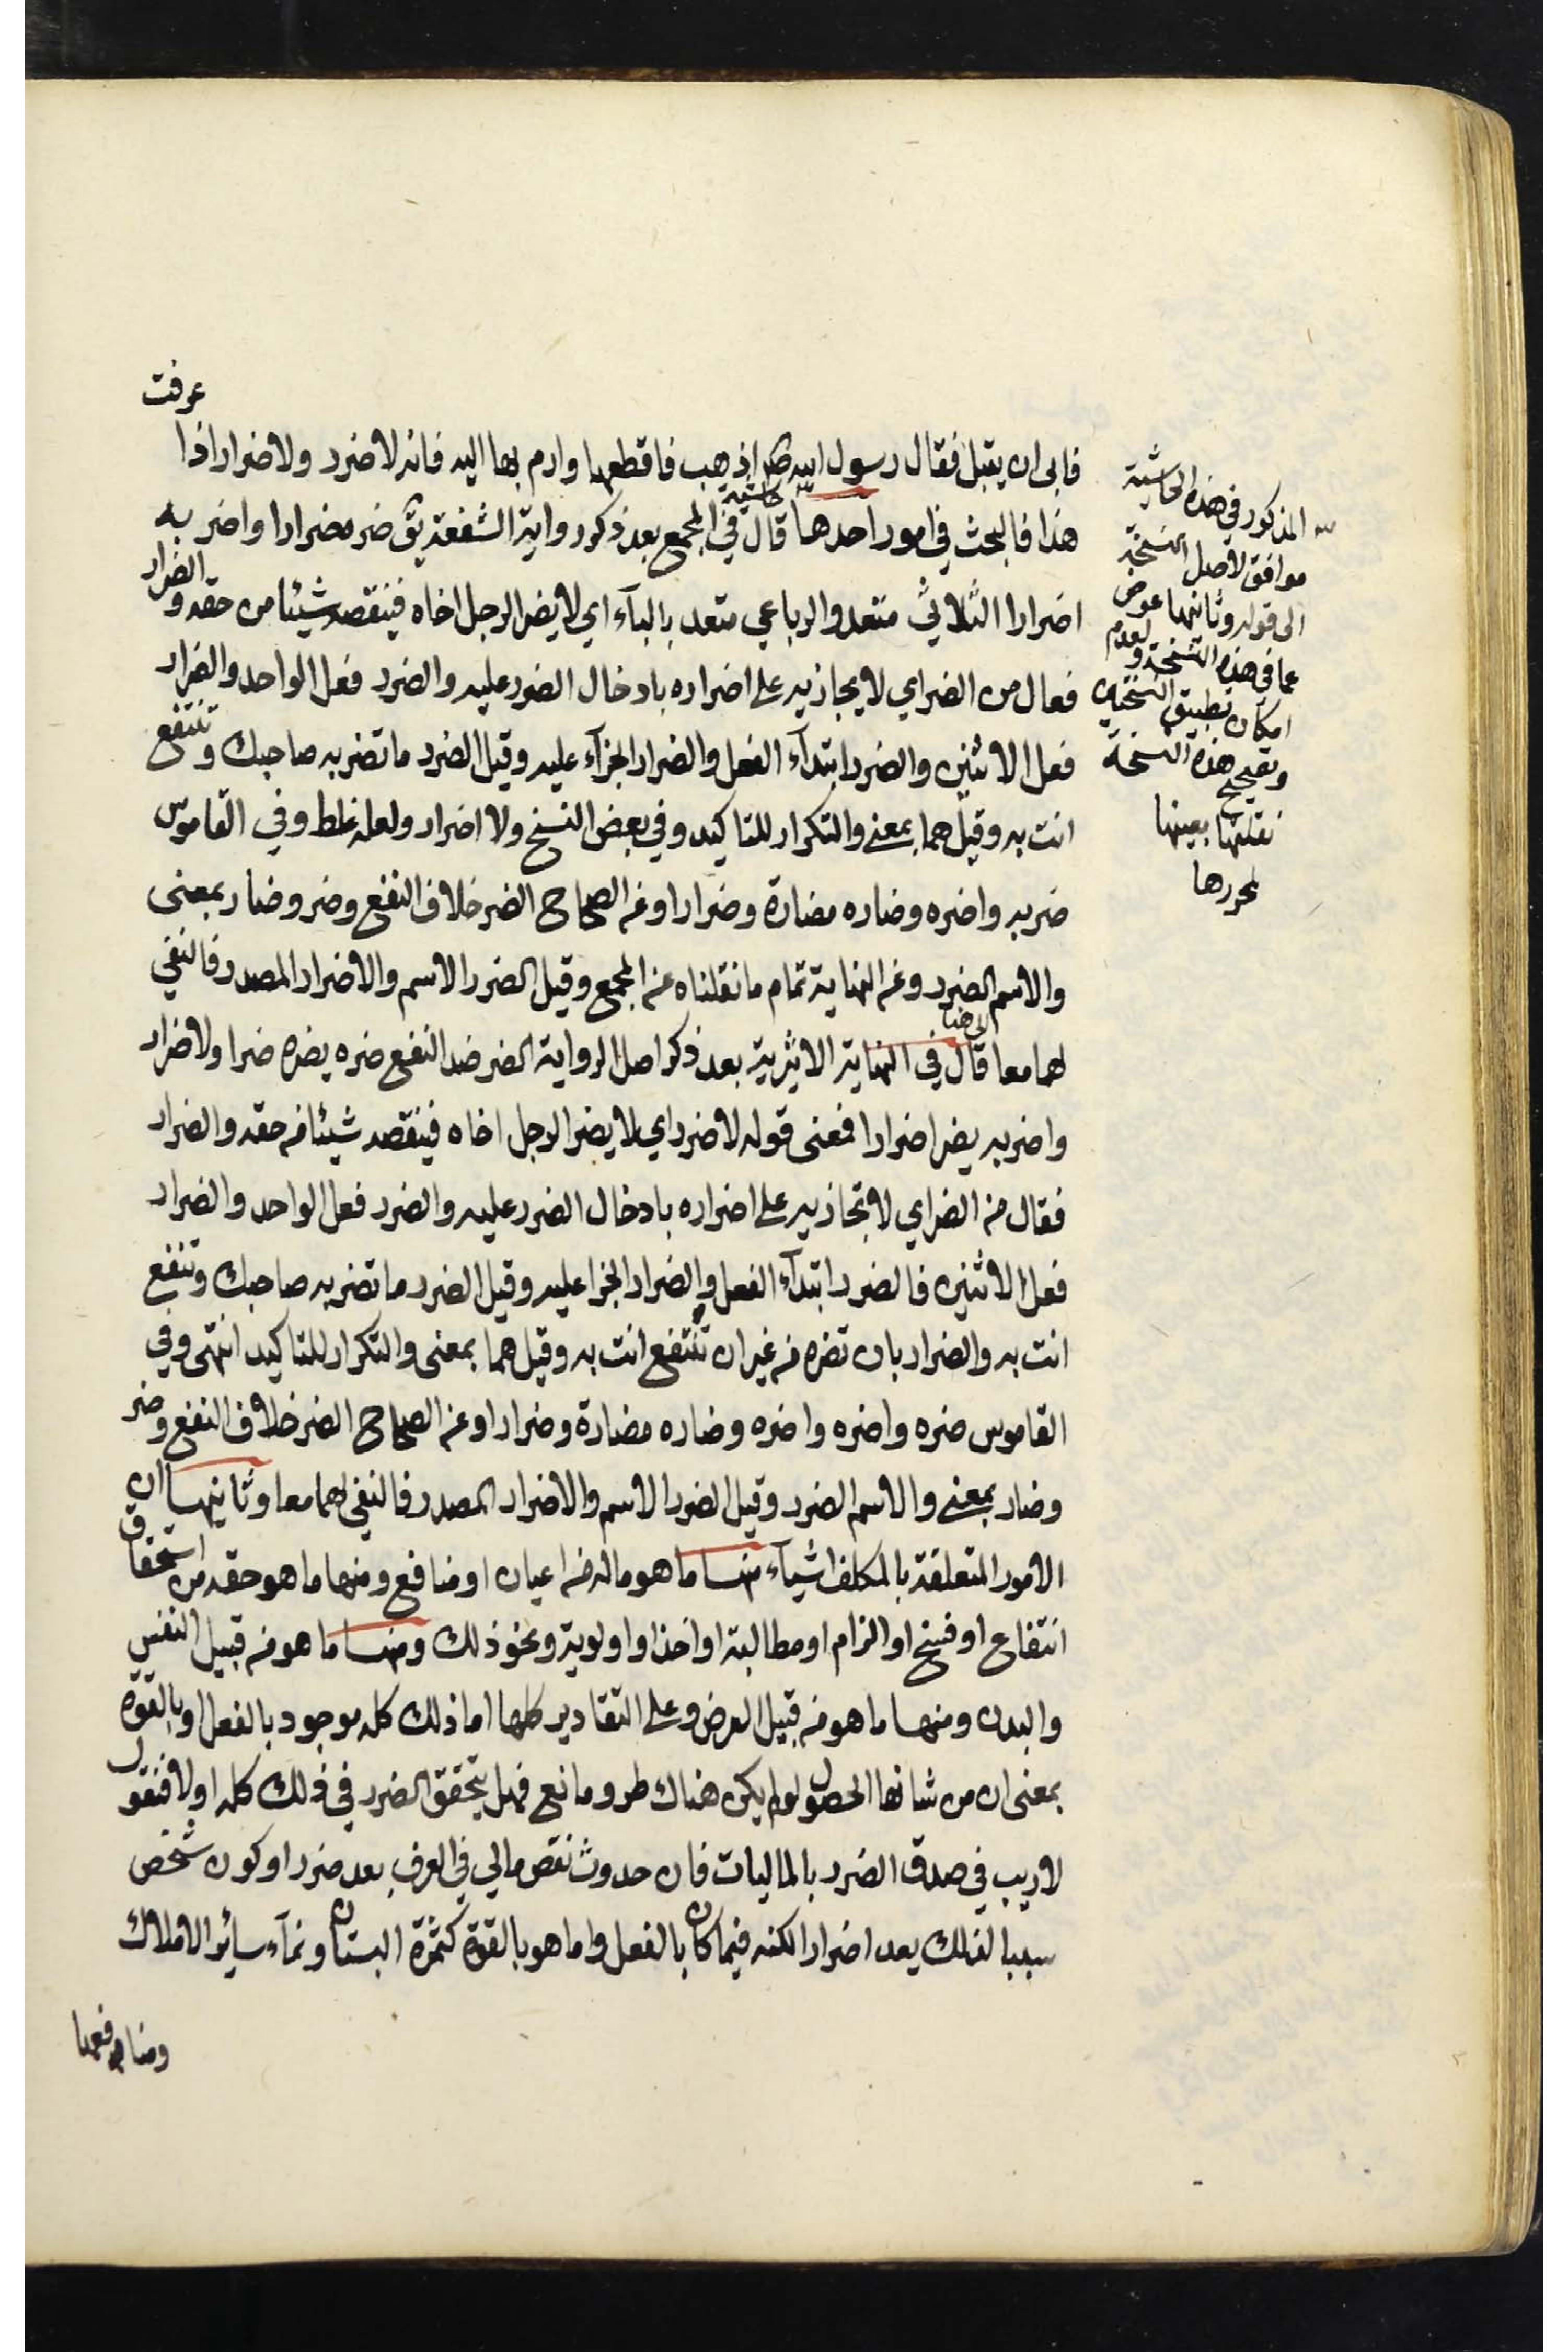 عرفت
فابى ان يقبل فقال رسول الله ص اذهب فاقطعها وارم بها اليه فانه لا ضرر ولا ضرار اذا
هذا فالبحث في امور احدها قال في المجمع بعد ذكر رواية الشفعة يق ضره ضرارا واضر به
حاشية
اضرارا الثلاثي متعد والرباعي متعد بالباء اي لا يضر الرجل اخاه فينقصه شيئا من حقه والضرار
فعال من الضر اي لا يجازيه على اضراره بادخال الضرر عليه والضرر فعل الواحد والضرار
فعل الاثنين والضرر ابتدآء الفعل والضرار الجزآء عليه وقيل الضرر ما تضر به صاحبك وتنتفع
انت به وقيل هما بمعنى والتكرار للتاكيد وفي بعض النسخ ولا اضرار ولعله غلط وفي القاموس
ضر به واضره وضاره مضارة وضرارا وعن الصحاح الضر خلاف النفع وضر وضار بمعنى
والاسم الضرر وعن النهاية تمام ما نقلناه عن المجمع وقيل الضرر الاسم والاضرار المصدر فالنفي
لهما معا قال في النهاية الاثيرية بعد ذكر اصل الرواية الضر ضد النفع ضره يضره ضرا ولا ضرار
الى هنا
واضر به يضر اضرارا فمعنى قوله لا ضرر اي لا يضر الرجل اخاه فينقصه شيئا من حقه والضرار
فقال من الضر اي لا تجازيه على اضراره بادخال الضرر عليه والضرر فعل الواحد والضرار
فعل الاثنين فالضرر ابتدآء الفعل والضرار الجزا عليه وقيل الضرر ما تضر به صاحبك وتنتفع
انت به والضرار بان تضره من غير ان تنتفع انت به وقيل هما بمعنى والتكرار للتاكيد انتهى وفي
القاموس ضره واضره واضره وضاره مضارة وضرارا وعن الصحاح الضر خلاف النفع وضر
وضار بمعنى والاسم الضرر وقيل الضرر الاسم والاضرار المصدر فالنفي لهما معا وثانيها ان
الامور المتعلقة بالمكلف اشيآء منها ما هو ماله من اعيان او منافع ومنها ما هو حقه من استحقاق
انتفاع او فسخ او الزام او مطالبة او اخذ او اولوية ونحو ذلك ومنها ما هو من قبيل النفس
والبدن ومنها ما هو من قبيل العرض وعلى التقادير كلها اما ذلك كله موجود بالفعل او بالقوة
بمعنى ان من شانها الحصول لو لم يكن هناك طرو مانع فهل يتحقق الضرر في ذلك كله او لا فنقول
لا ريب في صدق الضرر بالماليات فان حدوث نقص مالي في العرف يعد ضررا وكون شخص
سببا لذلك يعد اضرارا لكنه فيما كان بالفعل واما هو بالقوة كثمرة البستان ونمآء سائر الاملاك
ومنافعها
المذكور في هذه الحاشية
موافق لاصل النسخة
الى قوله وثانيها عوض
عما في هذه النسخة ولعدم
امكان تطبيق النسختين
وتصحيح هذه النسخة
نقلتها بعينها
لمحررها